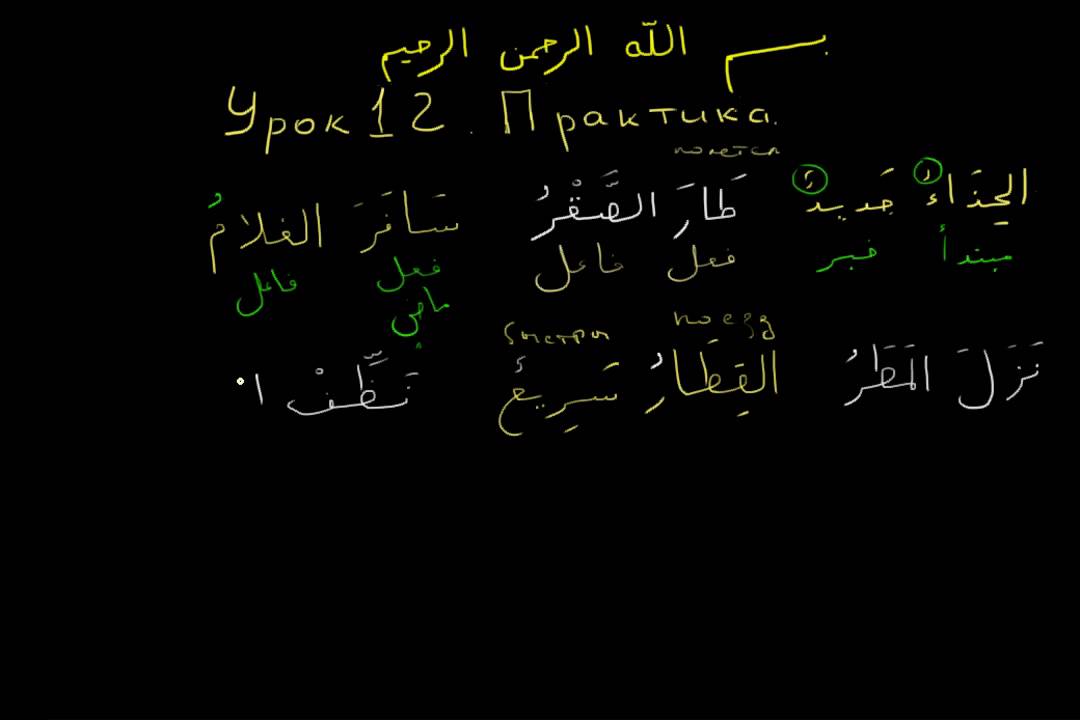 بسم الله الرحمن الرحيم
Урок 12. Практика.
полетел
الحِذَاءُ جَديدٌ طَارَ الصَّقْرُ سَافَرَ الغلامُ
مبتدأ خبر فعل فاعل فعل فاعل
ماضٍ
поезд быстрый
نَزَلَ المَطَرُ القِطَارُ سَرِيعٌ نَظِّفْ ا